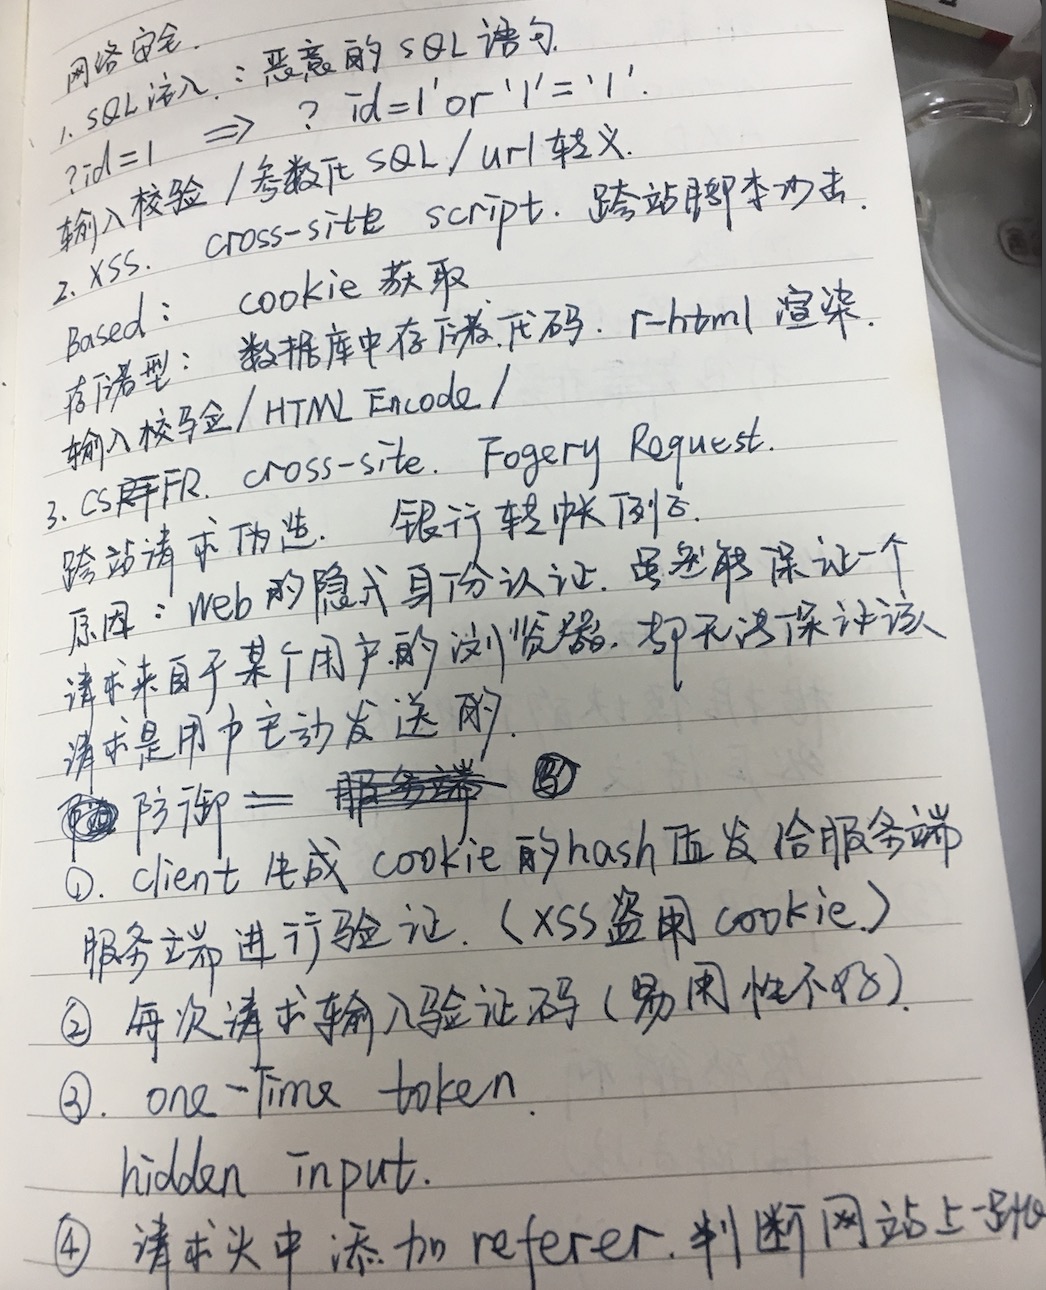 网络安全.
1. SQL注入. : 恶意的SQL语句.
?id=1 ⇒ ? id=1' or '1'='1'.
输入校验/参数化SQL/url转义.
2. XSS. cross-site script. 跨站脚本攻击.
Based: cookie 获取
存储型: 数据库中存储代码. r-html 渲染.
输入校验/HTML Encode/
3. CSFR. cross-site. Fogery Request.
跨站请求伪造. 银行转帐例子.
原因: Web的隐式身份认证. 虽然能保证一个
请求来自于某个用户的浏览器. 却无法保证该
请求是用户主动发送的.
防御=
①. client 生成 cookie 的hash值发给服务端
服务端进行验证. (XSS盗用 cookie.)
② 每次请求输入验证码(易用性不好).
③. one-Time token.
hidden input.
④ 请求头中添加 referer. 判断网站上一